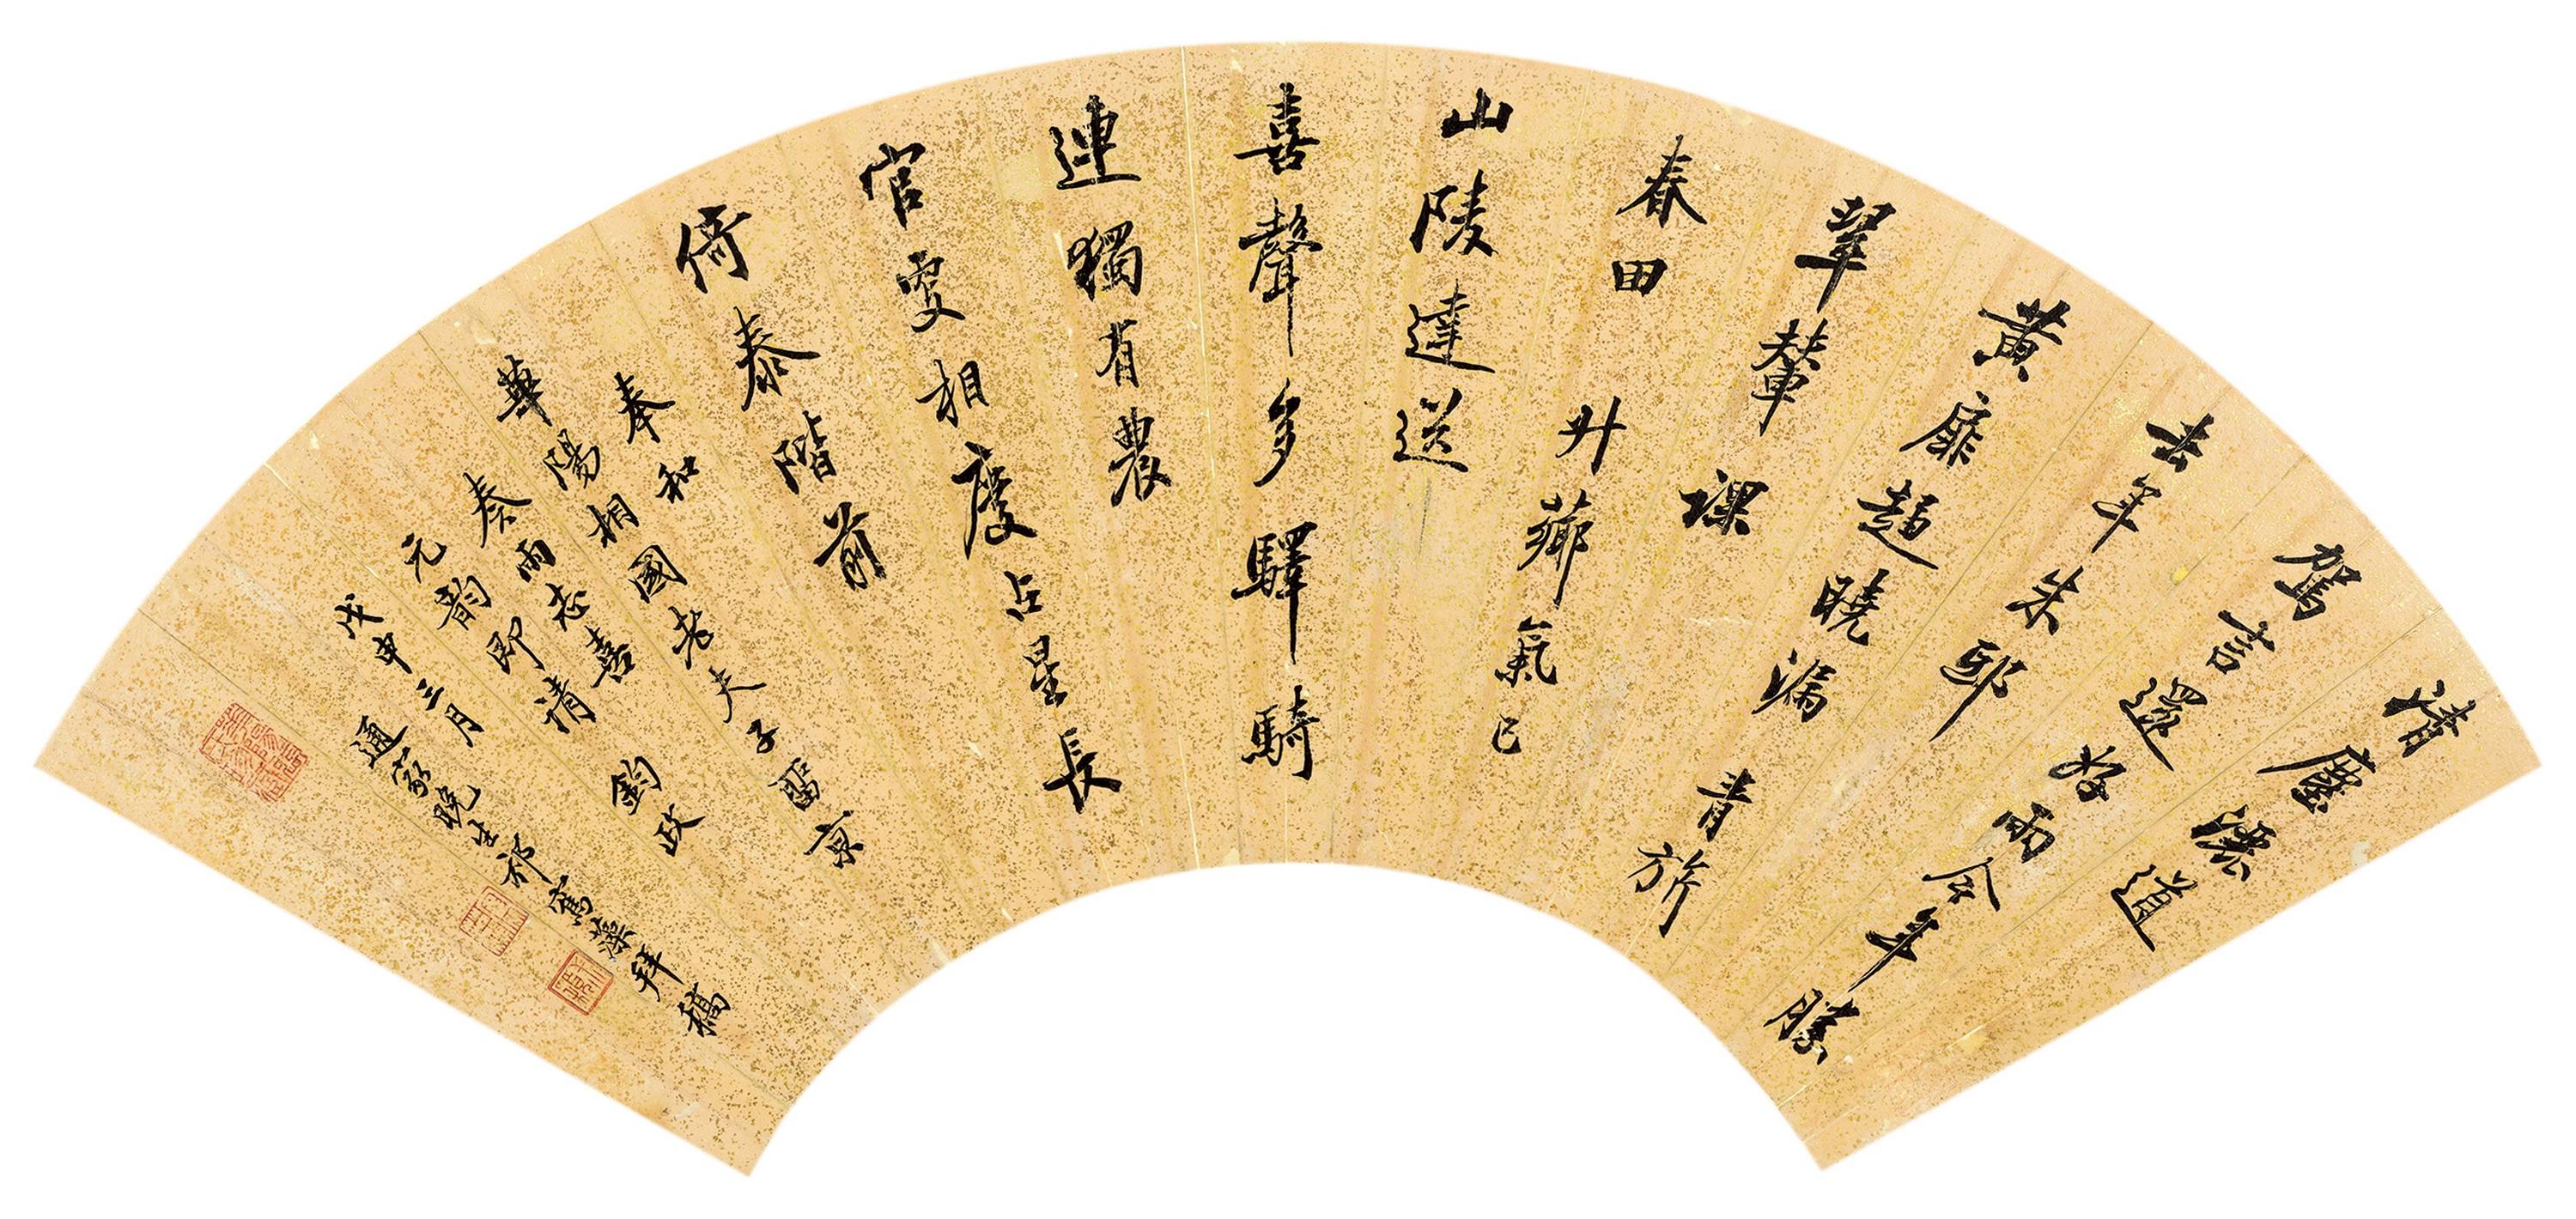 清塵灑道
駕言還好雨今年勝
去年朱邸
黃扉趨曉漏青旂
翠輦課
春田升薌氣已
山陵達送
喜聲多驛騎
連獨有農
官虔相度占星長
倚泰階前
奉和
華陽相國老夫子留京
奏雨志喜
元韵即請鈞政
戊申三月
通家晚生祁寯藻拜稿